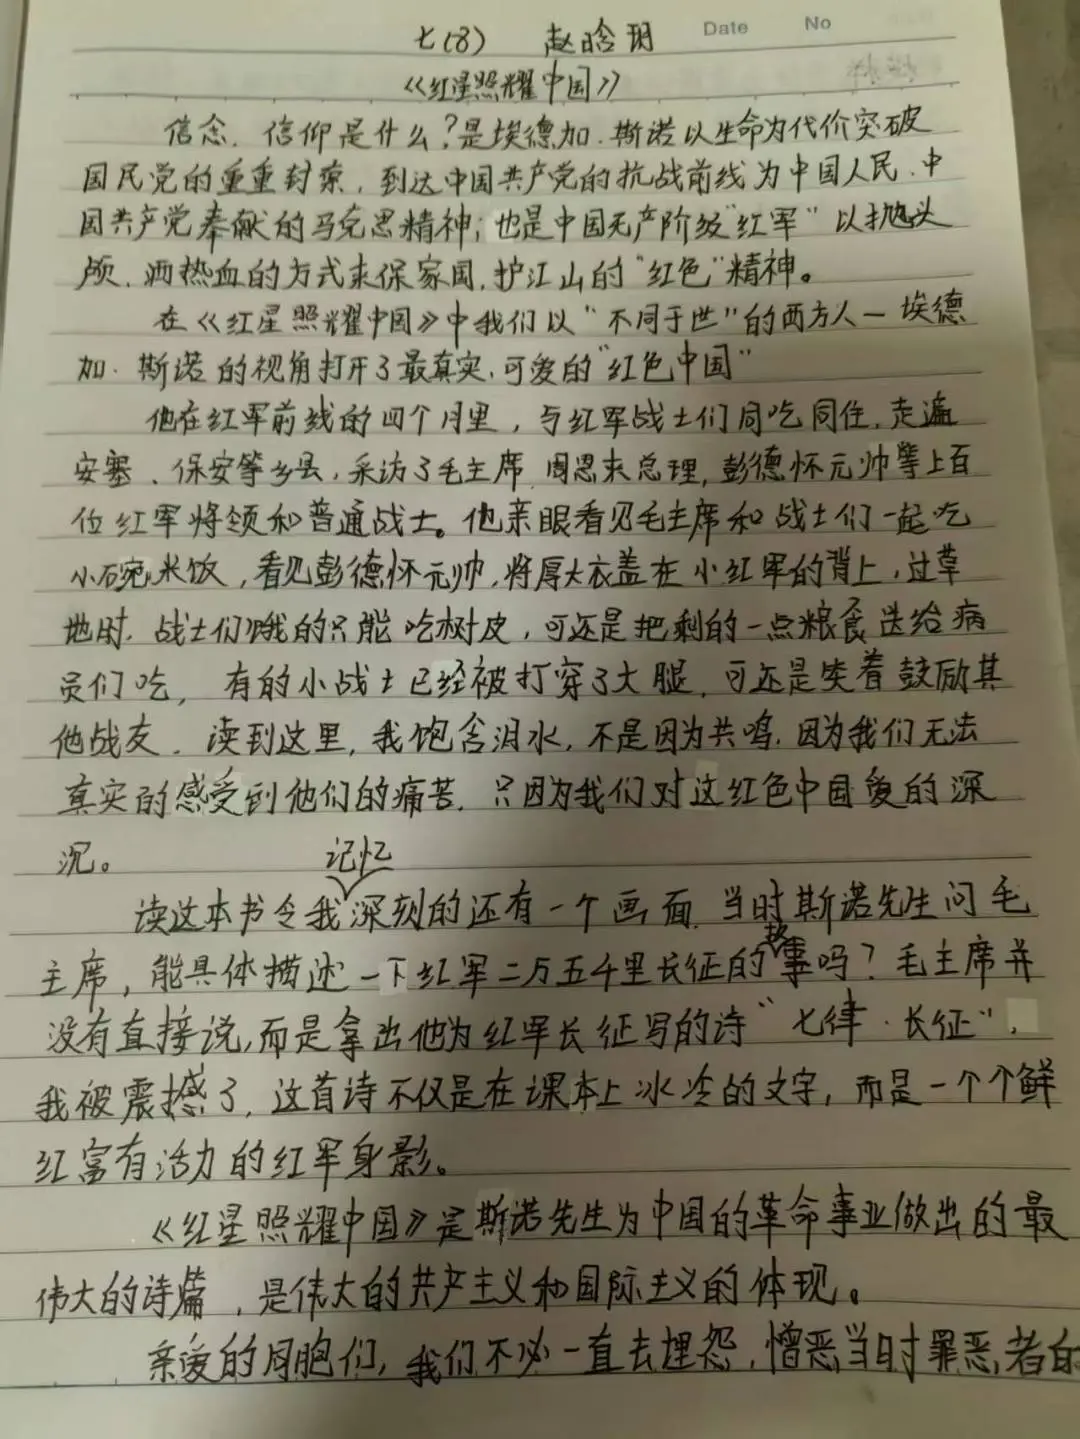 Date No
七(8) 赵晗玥
《红星照耀中国》
信念、信仰是什么?是埃德加·斯诺以生命为代价突破
国民党的重重封索,到达中国共产党的抗战前线为中国人民、中
国共产党奉献的马克思精神;也是中国无产阶级“红军”以抛头
颅、洒热血的方式来保家国,护江山的“红色”精神。
在《红星照耀中国》中我们以“不同于世”的西方人—埃德
加·斯诺的视角打开了最真实、可爱的“红色中国”
他在红军前线的四个月里,与红军战士们同吃同住,走遍
安塞、保安等乡县,采访了毛主席、周恩来总理,彭德怀元帅等上百
位红军将领和普通战士。他亲眼看见毛主席和战士们一起吃
小碗米饭,看见彭德怀元帅,将厚大衣盖在小红军的背上,过草
地时,战士们饿的只能吃树皮,可还是把剩的一点粮食送给病
员们吃,有的小战士已经被打穿了大腿,可还是笑着鼓励其
他战友。读到这里,我饱含泪水,不是因为共鸣,因为我们无法
真实的感受到他们的痛苦,只因为我们对这红色中国爱的深
沉。
读这本书令我记忆深刻的还有一个画面,当时斯诺先生问毛
主席,能具体描述一下红军二万五千里长征的故事吗?毛主席并
没有直接说,而是拿出他为红军长征写的诗“七律·长征”,
我被震撼了,这首诗不仅是在课本上冰冷的文字,而是一个个鲜
红富有活力的红军身影。
《红星照耀中国》是斯诺先生为中国的革命事业做出的最
伟大的诗篇,是伟大的共产主义和国际主义的体现。
亲爱的同胞们,我们不必一直去埋怨,憎恶当时罪恶者的